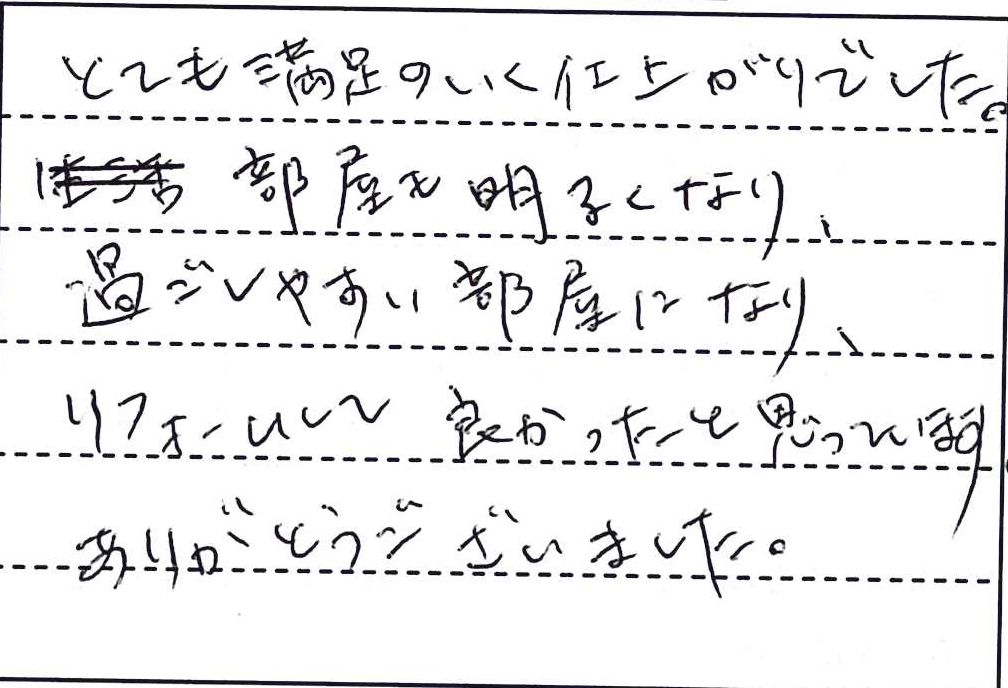 とても満足のいく仕上がりでした。
部屋も明るくなり、
過ごしやすい部屋になり、
リフォームして良かったと思っています
ありがとうございました。